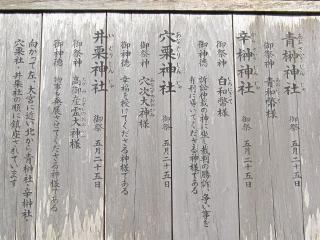 青榊神社
御祭 五月二十五日
御祭神 青和幣様
辛榊神社
御祭 五月二十五日
御祭神 白和幣様
御神徳 訴訟仲裁の神に坐し裁判の勝訴、争い事を
有利に導いてくださる神様である
穴栗神社
御祭 五月二十五日
御祭神 穴次大神様
御神徳 幸福を授けてくださる神様である
井栗神社
御祭 五月二十五日
御祭神 高御産霊大神様
御神徳 物事を発展させてくださる神様である
向かって左、大宮に近い北から青榊社・辛榊社・
穴栗社・井栗社の順に鎮座されています